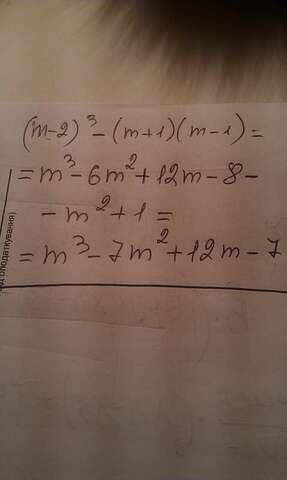 (m-2)³-(m+1)(m-1)=
=m³-6m²+12m-8-
-m²+1=
=m³-7m²+12m-7